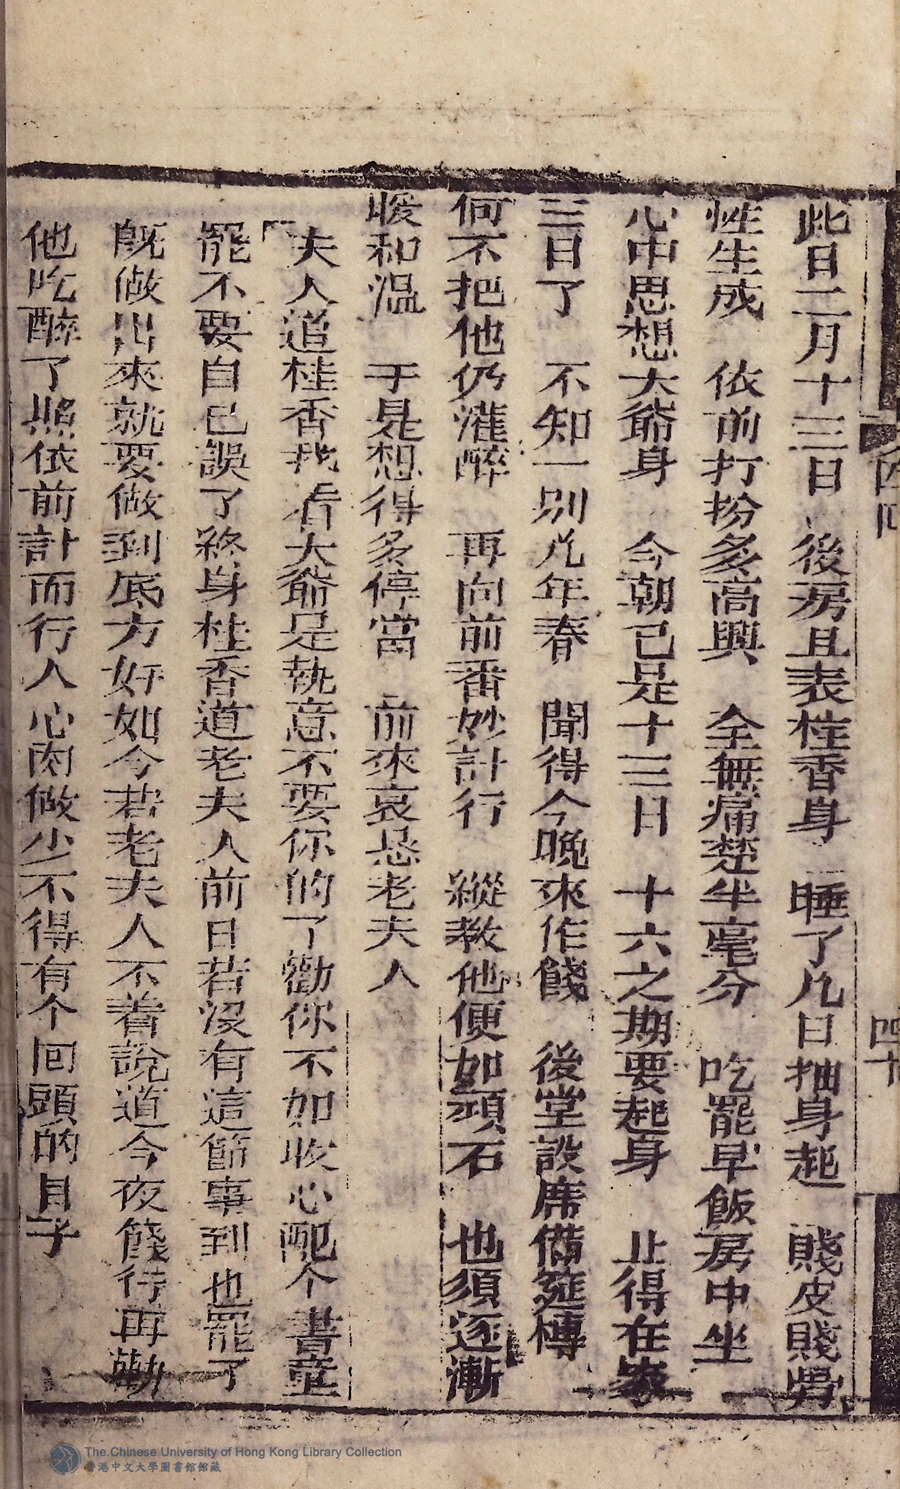 此日二月十三日　後房且表桂香身　睡了几日抽身起　賤皮賤骨
性生成　依前打扮多高興　全無痛楚半毫分　吃罷早飯房中坐
心中思想大爺身　今朝已是十三日　十六之期要起身　止得在家
三日了　不知一别几年春　聞得今晚來作餞　後堂設席備筵樽
何不把他仍灌醉　再向前番妙計行　縱教他便如頑石　也須逐漸
暖和溫　于是想得多停當　前來哀恳老夫人
夫人道桂香我看大爺是執意不要你的了勸你不如收心配个書童
罷不要自已誤了終身桂香道老夫人前日若沒有這節事到也罷了
旣做出來就要做到底方好如今若老夫人不着說道今夜餞行再勸
他吃醉了照依前計而行人心肉做少不得有个回頭的日子
四回
四十
The Chinese University of Hong Kong Library Collection
香港中文大學圖書館館藏